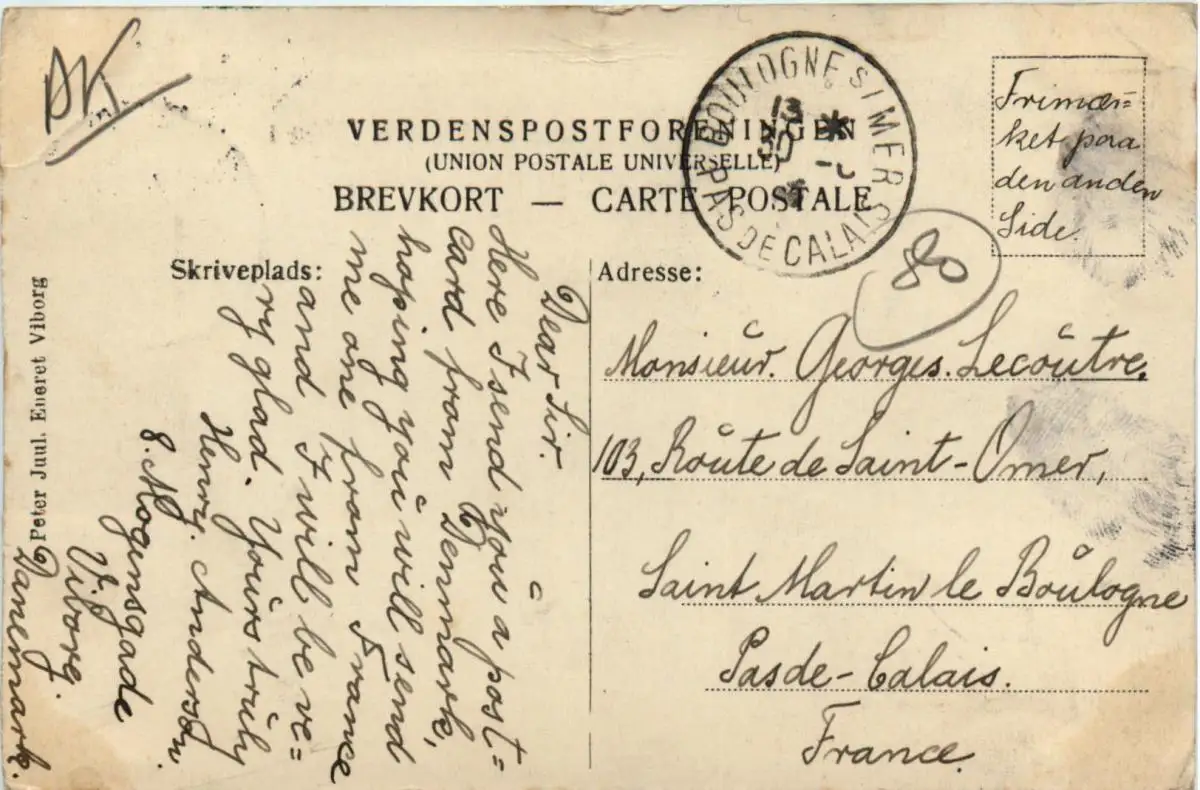 DK
VERDENSPOSTFORENINGEN
(UNION POSTALE UNIVERSELLE)
BREVKORT — CARTE POSTALE
BOULOGNE S/MER
13
PAS DE CALAIS
Frimær=
ket paa
den anden
Side.
80
Skriveplads:
Dear Sir.
Here I send you a post=
card from Denmark,
hoping you will send
me one from France
and I will be ve=
ry glad. Yours truly
Henry. Anderson.
8. Mogensgade
Viborg.
Danemark.
Adresse:
Monsieur. Georges. Lecoutre.
103, Route de Saint-Omer,
Saint Martin le Boulogne
Pas de-Calais.
France.
Peter Juul. Eneret Viborg